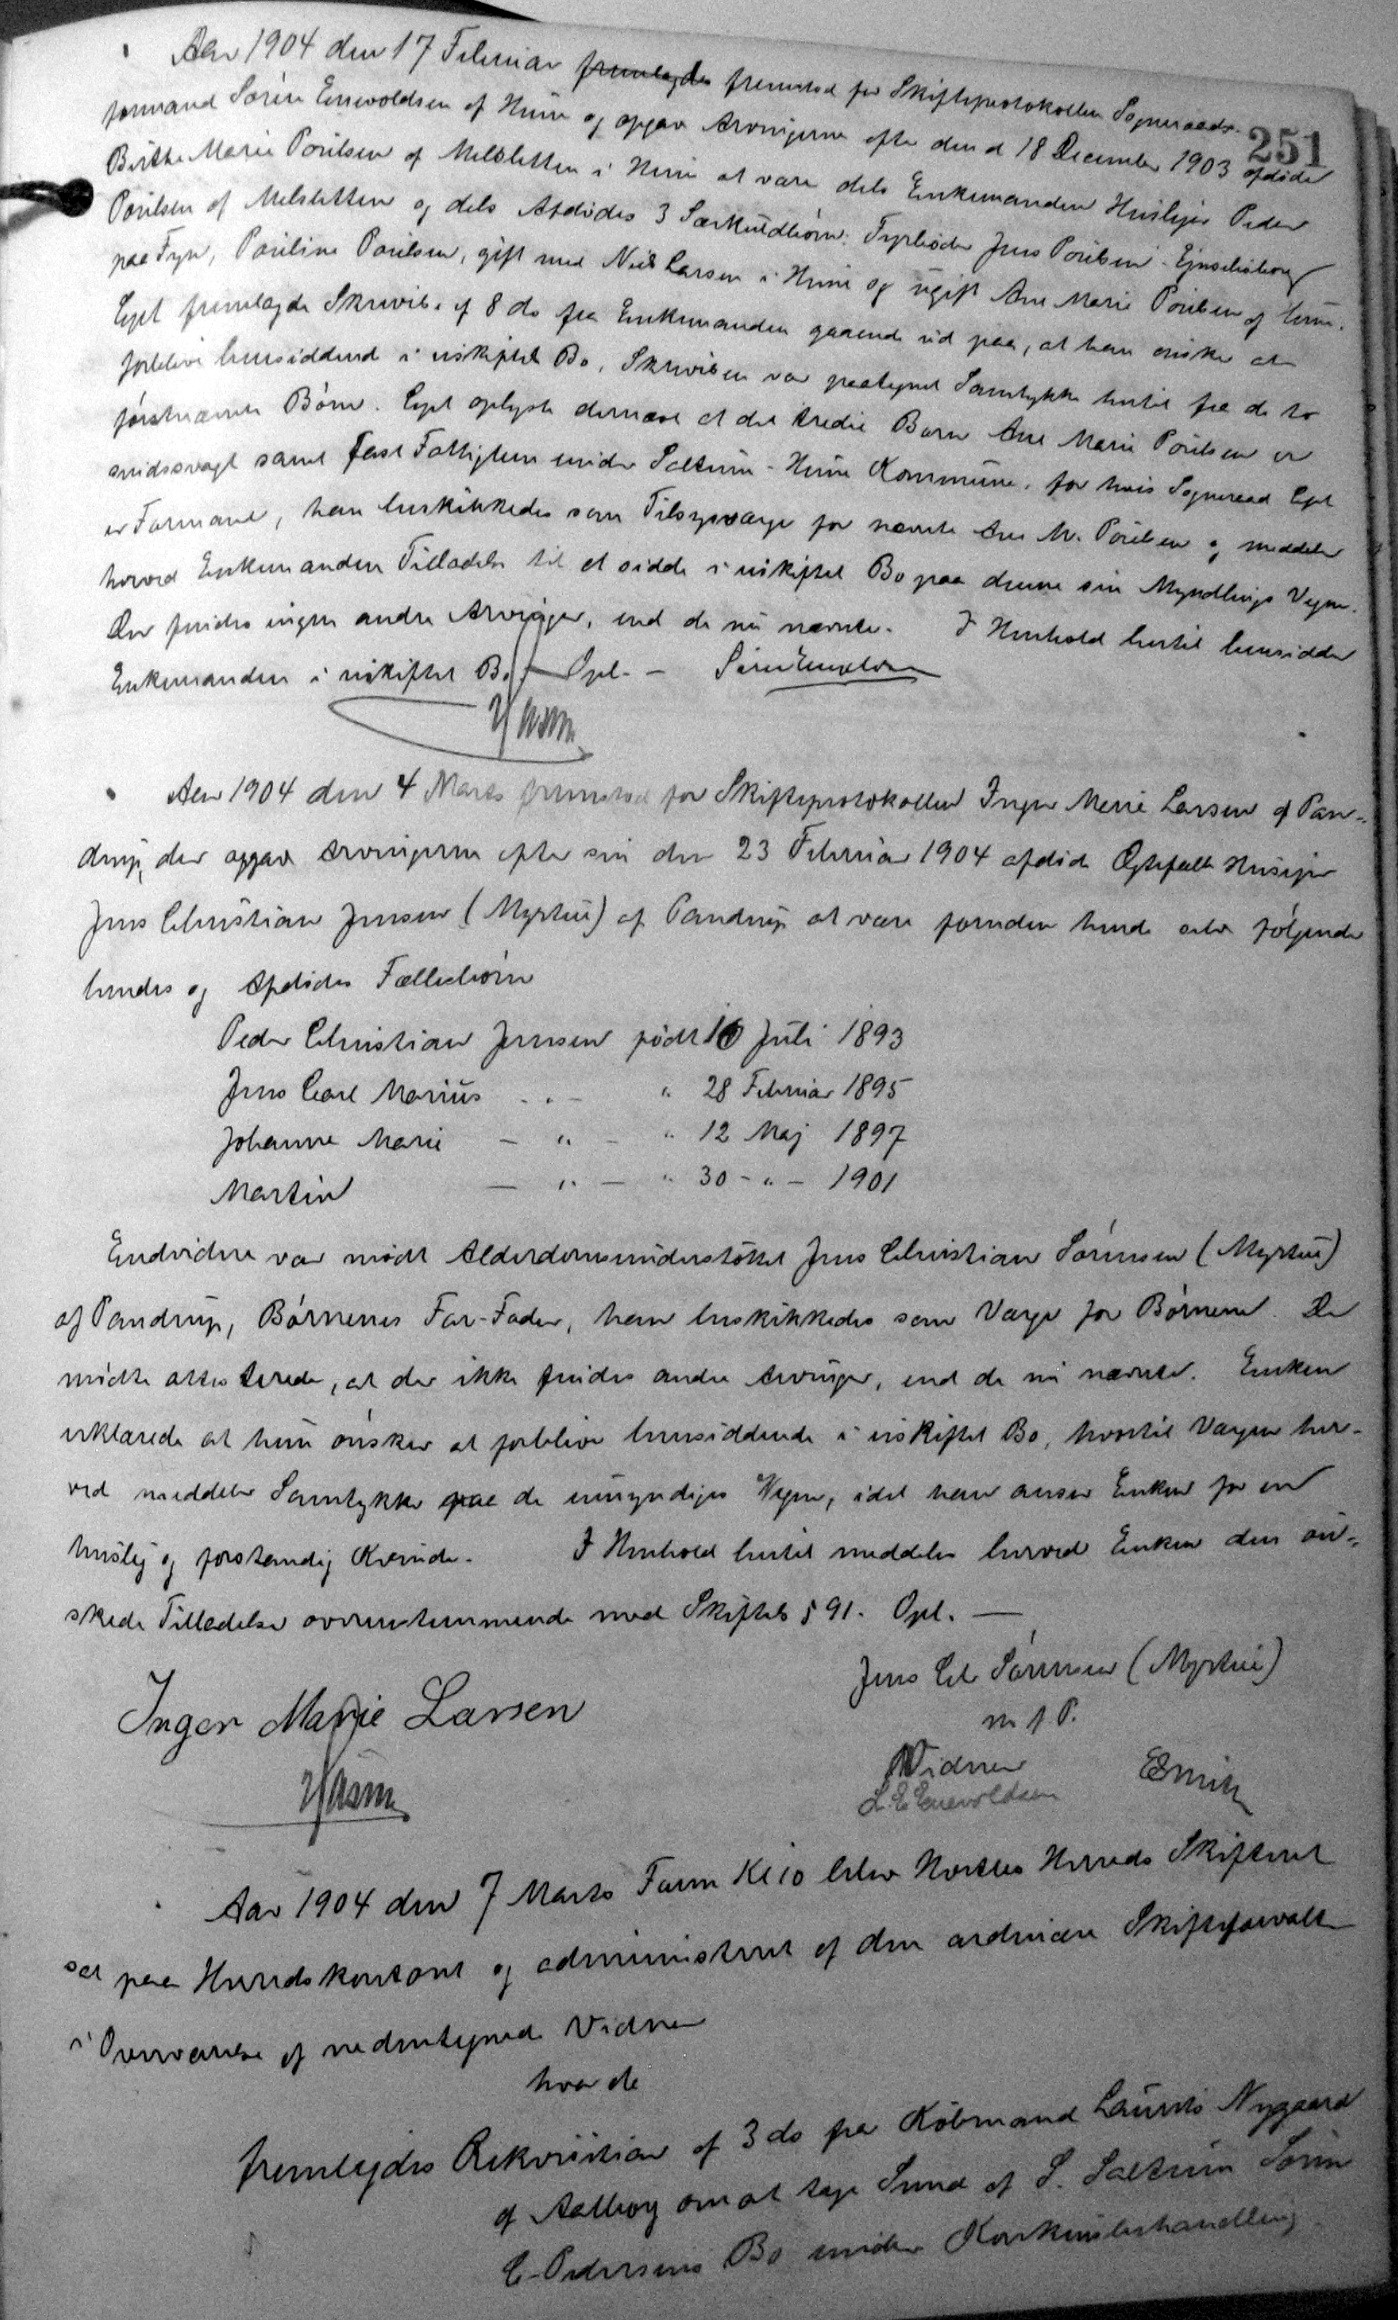 251
Aar 1904 den 17 Februar fremlagdes fremstod for Skifteprotokollen Sogneraads-
formand Sören Enevoldsen af Hune og opgav Arvingerne efter den d 18 December 1903 afdöde
Birthe Marie Poulsen af Melsletten i Hune at være dels Enkemanden Husejer Peder
Poulsen af Melsletten og dels Afdödes 3 Særkuldbörn: Fyrböder Jens Poulsen
paa Fyn, Pouline Poulsen, gift med Niels Larsen i Hune og ugift Ane Marie Poulsen af Hune.
Cpt fremlagde Skrivels. af 8 ds fra Enkemanden gaaende ud paa, at han önsker at
forblive hensiddende i uskiftet Bo, Skrivelsen var paategnet Samtykke hertil fra de to
förstnævnte Börn. Cpt oplyste dernæst at det tredie Barn Ane Marie Poulsen er
aandssvagt samt fast Fattiglem under Saltum-Hune Kommune, for hvis Sogneraad Cpt
er Formand, han beskikkedes som Tilsynsværge for nævnte Ane M. Poulsen og meddeler
herved Enkemanden Tilladelse til at sidde i uskiftet Bo paa denne sin Myndlings Vegne.
Der findes ingen andre Arvinger, end de nu nævnte. I Henhold hertil hensidder
Enkemanden i uskiftet Bo. Opl. - Sören Enevoldsen
Aar 1904 den 4 Marts fremstod for Skifteprotokollen Inger Marie Larsen af Pan-
drup, der opgav Arvingerne efter sin den 23 Februar 1904 afdöde Ægtefælle Husejer
Jens Christian Jensen (Myrtue) af Pandrup at være foruden hende selv følgende
hendes og Afdödes Fællesbörn
Peder Christian Jensen födt 16 Juli 1893
Jens Carl Marius - " - " 28 Februar 1895
Johanne Marie - " - " 12 Maj 1897
Martin - " - " 30 - " - 1901
Endvidere var mödt Alderdomsunderstöttet Jens Christian Sörensen (Myrtue)
af Pandrup, Börnenes Far-Fader, han beskikkedes som Værge for Börnene. De
mödte attesterede, at der ikke findes andre Arvinger, end de nu nævnte. Enken
erklærede at hun önsker at forblive hensiddende i uskiftet Bo, hvortil Værgen her-
ved meddeler Samtykke paa de umyndiges Vegne, idet han anser Enken for en
huslig og forstandig Kvinde. I Henhold hertil meddeles herved Enken den ön-
skede Tilladelse overensstemmende med Skiftel. § 91. Opl. -
Jens Chr Sörensen (Myrtue)
Inger Marie Larsen
m f. P.
Vidner
L. E. Enevoldsen
Aar 1904 den 7 Marts Form Kl 10 blev Hvetbo Herreds Skifteret
sat paa Herredskontoret og administreret af den ordinære Skifteforvalter
i Overværelse af nedentegnede Vidner
hvor da
fremlagdes Rekvisition af 3 ds fra Köbmand Laurits Nygaard
af Aalborg om at tage Smed af S. Saltum Sören
C. Pedersens Bo under Konkursbehandling.